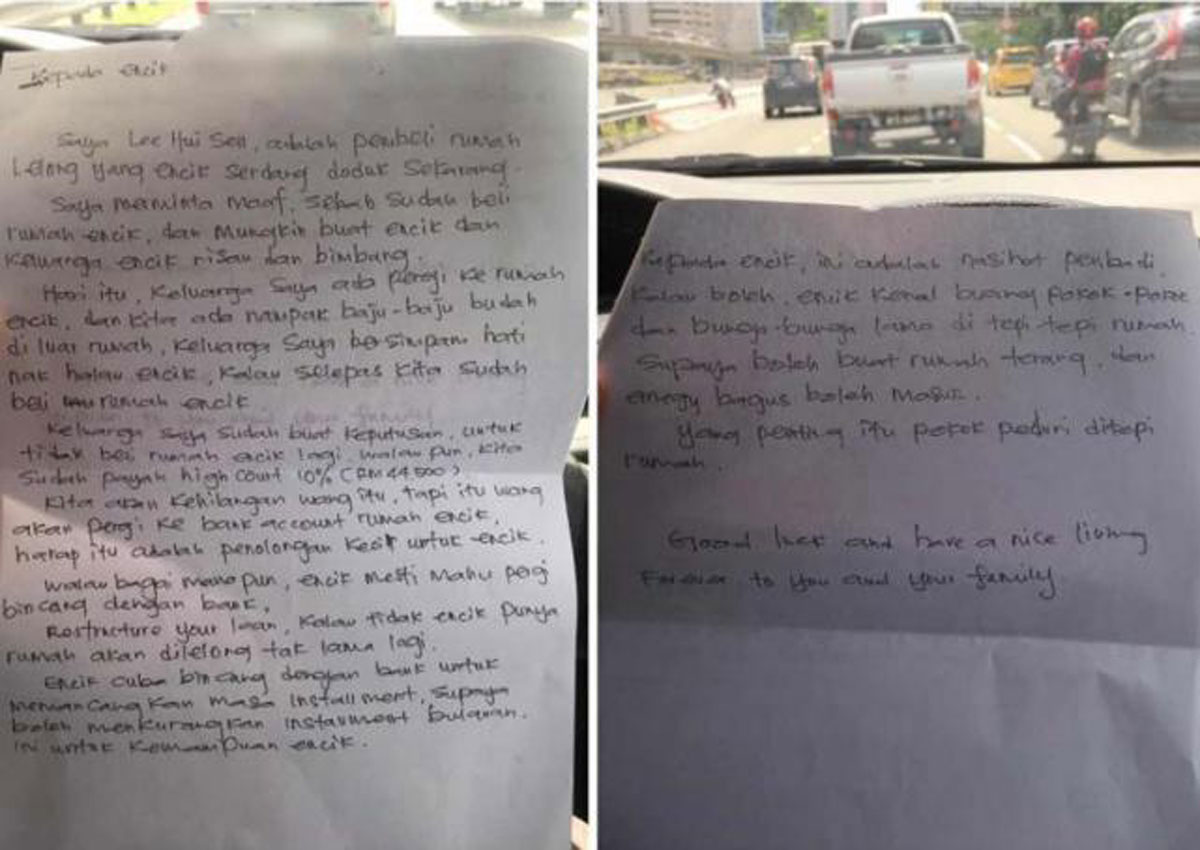 Kepada encik
Saya Lee Hui Sen, adalah pembeli rumah
Lelong yang encik serdang doduk sekarang.
Saya meminta maaf, sebab sudah beli
rumah encik, dan mungkin buat encik dan
keluarga encik risau dan bimbang.
Hari itu, keluarga saya ada peregi ke rumah
encik, dan kita ada nampak baju-baju budah
di luar rumah, keluarga saya bersimpam hati
nak halau encik, kalau selepas kita sudah
beli rumah encik
Keluarga saya sudah buat keputusan, untuk
tidak beli rumah encik lagi, walau pun, kita
sudah payah high court 10% (RM44500)
Kita akan kehilangan wang itu, tapi itu wang
akan pergi ke bank account rumah encik,
harap itu adalah penolongan kecil untuk encik.
Walau bagai mana pun, encik mesti mahu pegi
bincang dengan bank,
Restructure your loan, kalau tidak encik punya
rumah akan dilelong tak lama lagi.
Encik cuba bincang dengan bank untuk
memancangkan masa installment, supaya
boleh menkurangkan instavment bulanan.
ini untuk kemampuan encik.
Kepada encik, ini adalah nasihat peribadi,
Kalau boleh, encik kenal buang pokok-pokok
dan bunga-bunga lama di tepi-tepi rumah
Supaya boleh buat rumah terang, dan
energy bagus boleh masuk.
Yang penting itu pokok peduri ditepi
rumah.
Good luck and have a nice living
Forever to you and your family